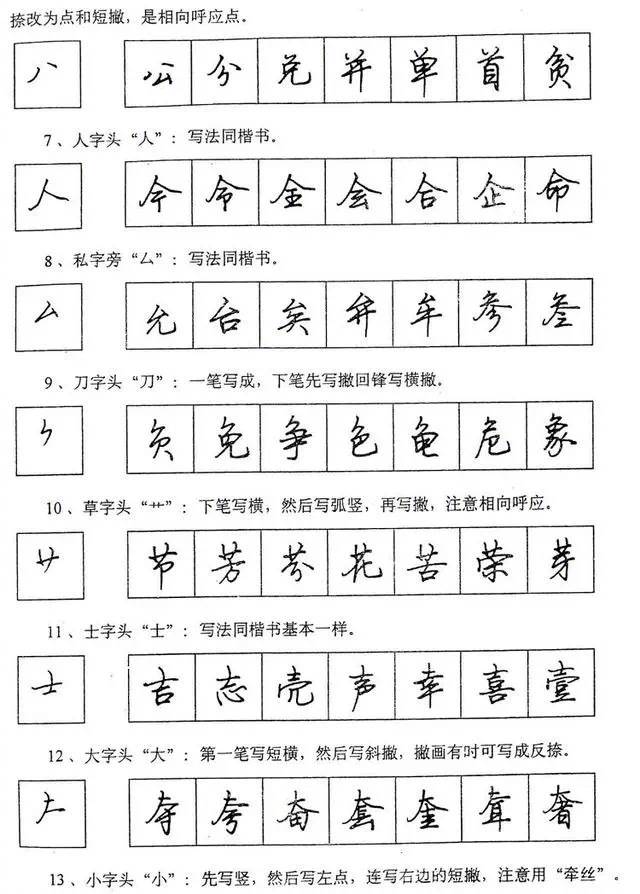 捺改为点和短撇，是相向呼应点。
八 公 分 兑 并 单 首 贫
7、人字头“人”：写法同楷书。
人 今 令 全 会 合 企 命
8、私字旁“厶”：写法同楷书。
厶 允 台 矣 弁 牟 参 叁
9、刀字头“刀”：一笔写成，下笔先写撇回锋写横撇。
⺈ 负 免 争 色 龟 危 象
10、草字头“艹”：下笔写横，然后写弧竖，再写撇，注意相向呼应。
艹 节 芳 芬 花 苦 荣 芽
11、士字头“士”：写法同楷书基本一样。
士 吉 志 壳 声 幸 喜 壹
12、大字头“大”：第一笔写短横，然后写斜撇，撇画有吋可写成反捺。
大 夺 夸 奋 套 奎 耷 奢
13、小字头“小”：先写竖，然后写左点，连写右边的短撇，注意用“牵丝”。